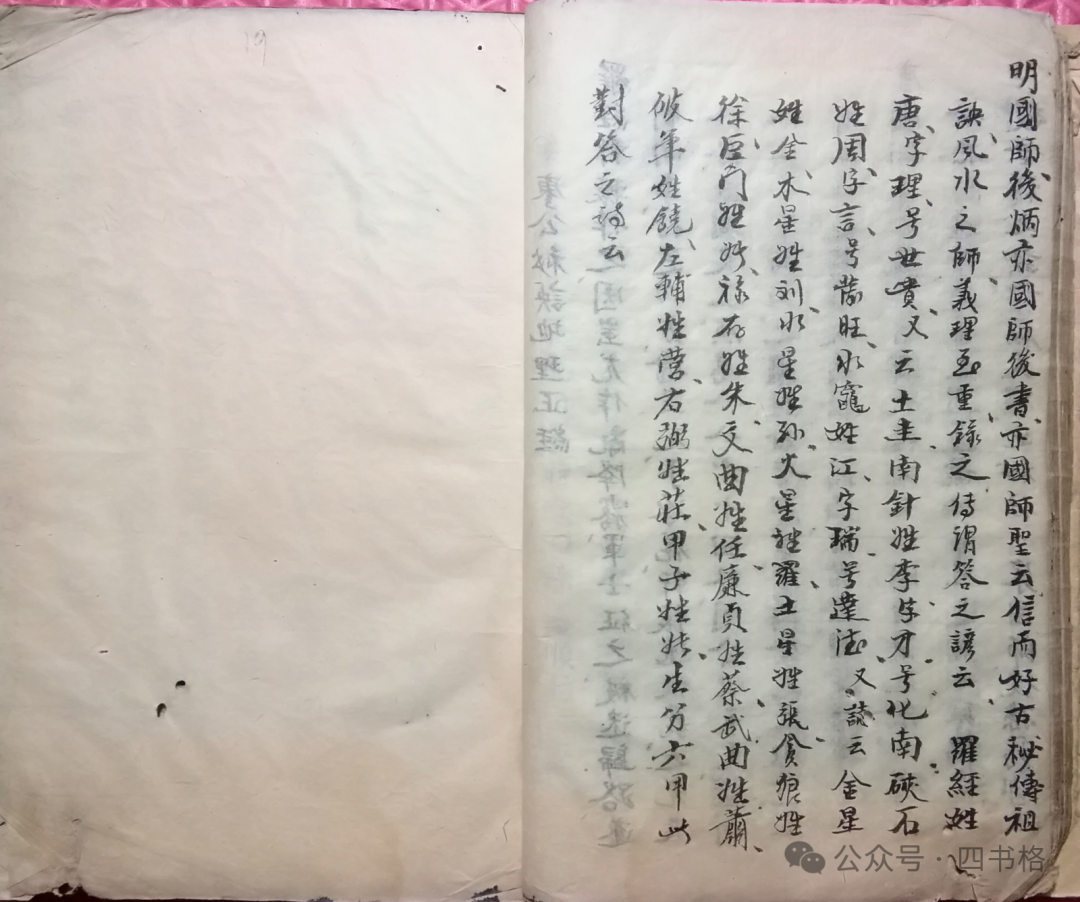 明國師後炳亦國師後書亦國師聖云信而好古秘傳祖
訣風水之師義理至重錄之侍謂答之諺云羅經姓
唐字理号世貴又云土圭南針姓李字才号化南硤石
姓周字言号發旺水竈姓江字瑞号達法又讀云金星
姓金木星姓刘水星姓孙火星姓羅土星姓張貪狼姓
徐巨门姓許禄存姓朱文曲姓任廉貞姓蔡武曲姓蕭
破军姓饒左輔姓營右弼姓莊甲子姓生分六甲此
對答之詩云
唐公秘訣地理正經
公众号·四书格